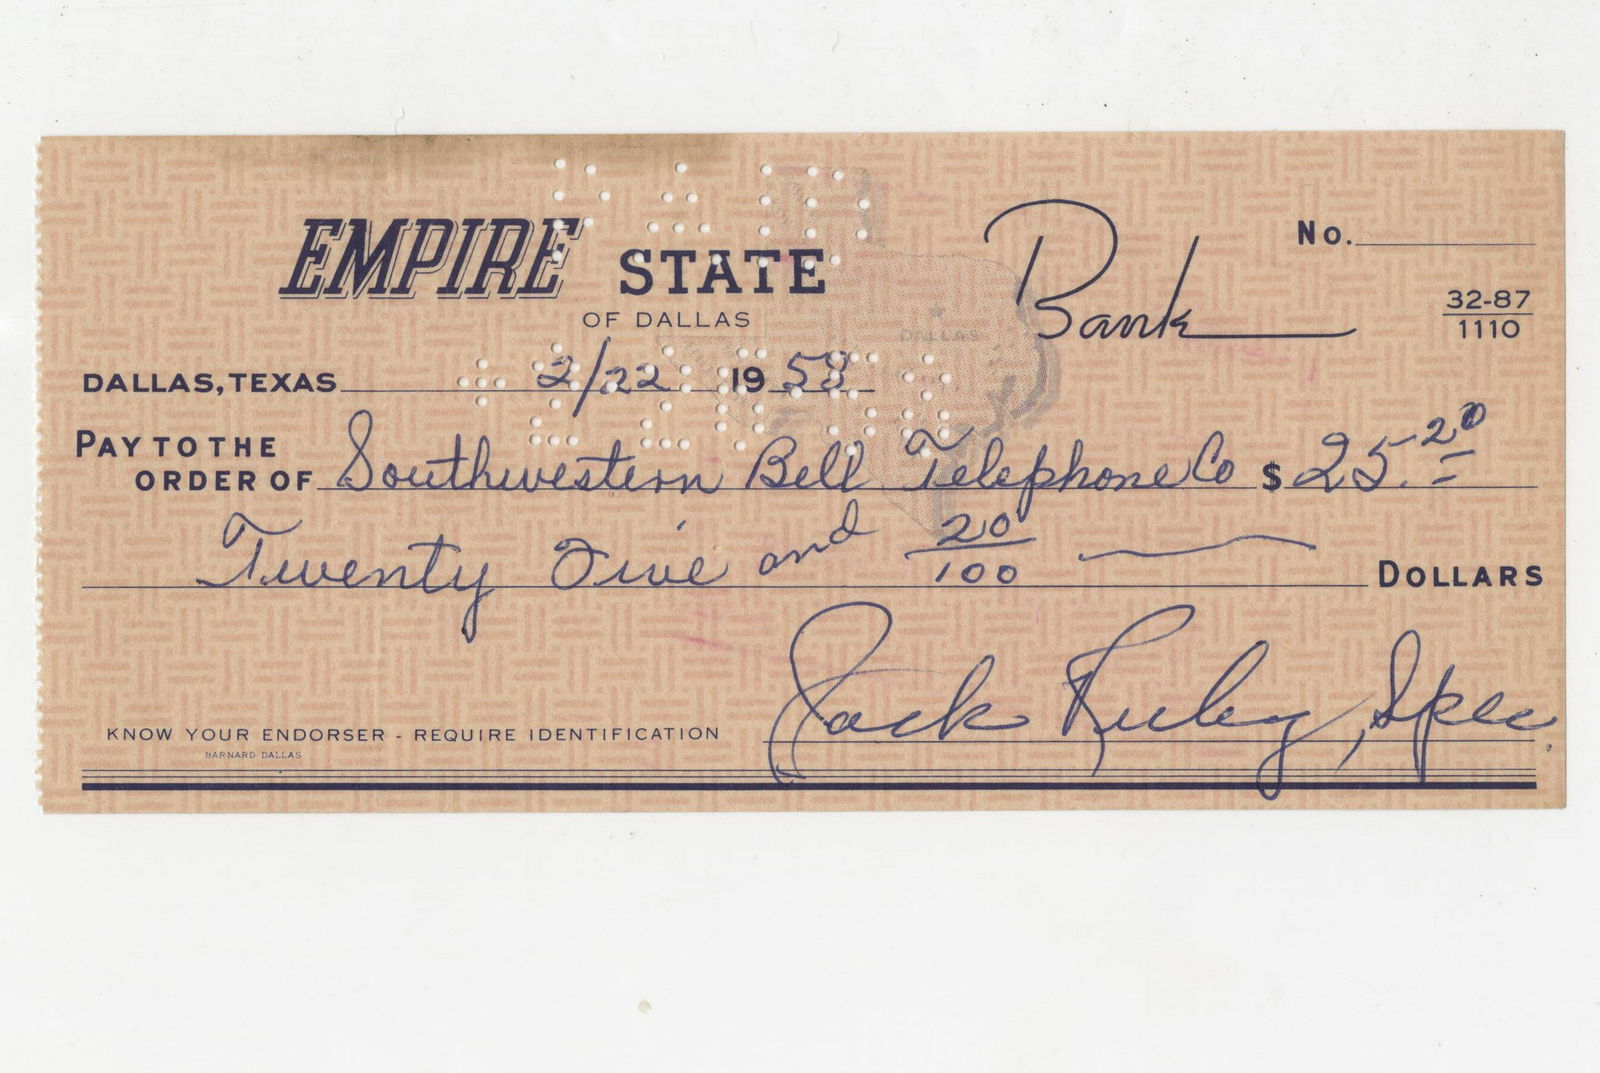 EMPIRE STATE Bank No.
OF DALLAS
32-87
1110
DALLAS
DALLAS, TEXAS 2/22 19 58
PAY TO THE
ORDER OF Southwestern Bell Telephone Co $ 25.20
Twenty Five and 20/100 DOLLARS
Jack Ruby, Spec.
KNOW YOUR ENDORSER - REQUIRE IDENTIFICATION
BARNARD DALLAS